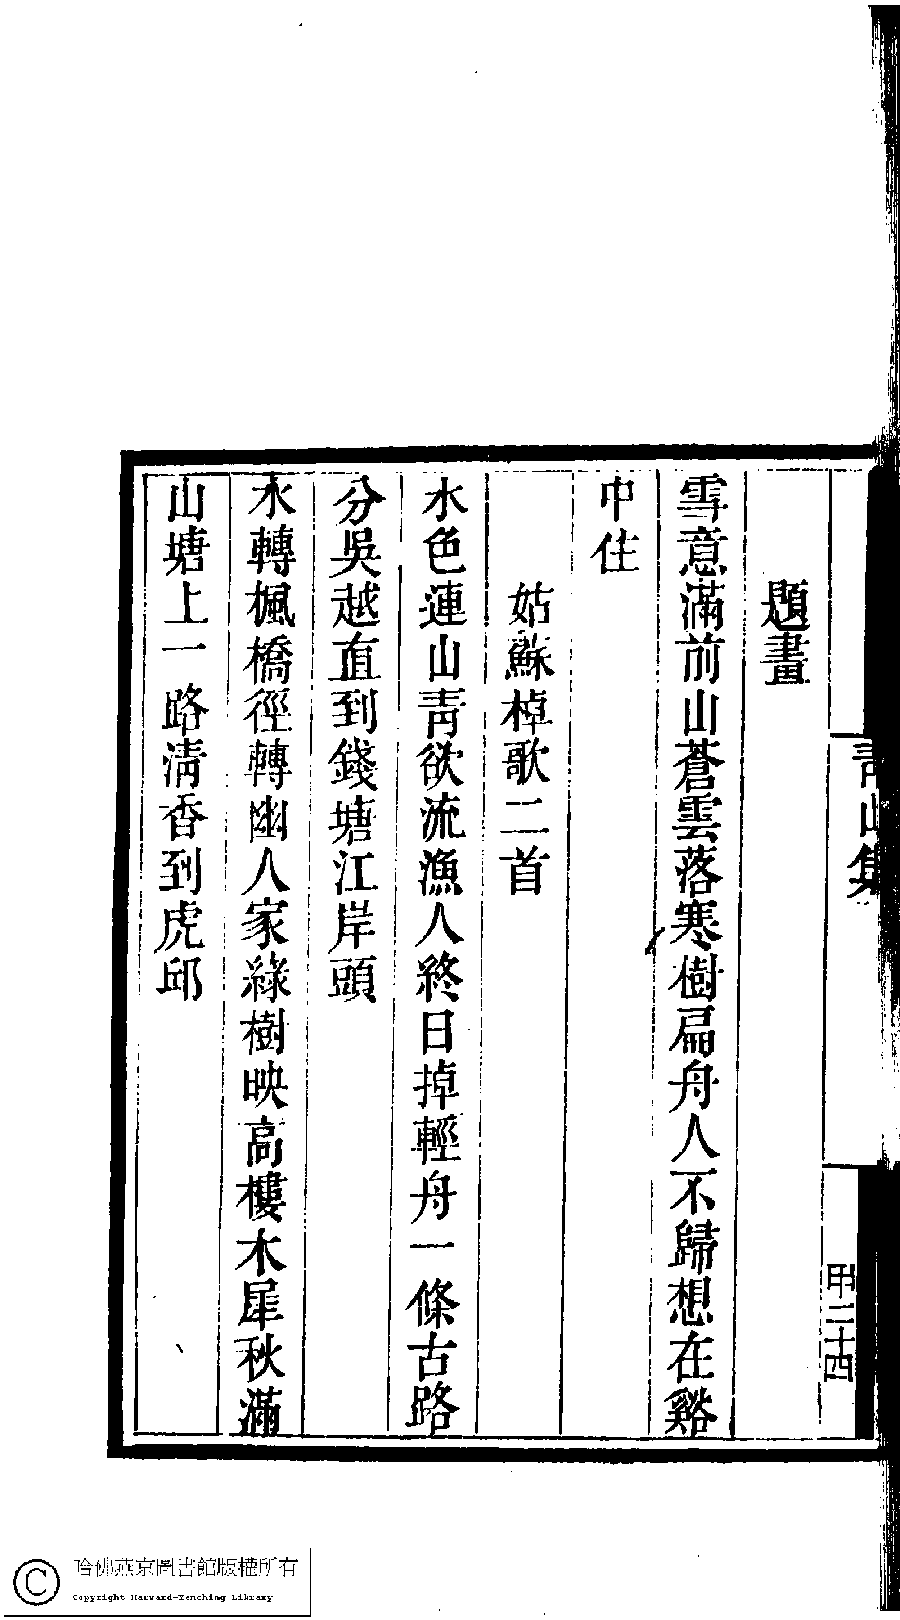 題畫
雪意滿前山蒼雲落寒樹扁舟人不歸想在谿
中住
姑蘇棹歌二首
水色連山靑欲流漁人終日掉輕舟一條古路
分吳越直到錢塘江岸頭
水轉楓橋徑轉幽人家綠樹映高樓木犀秋滿
山塘上一路淸香到虎邱
靑山集
甲二十四
哈佛燕京圖書館版權所有
Copyright Harvard-Yenching Library